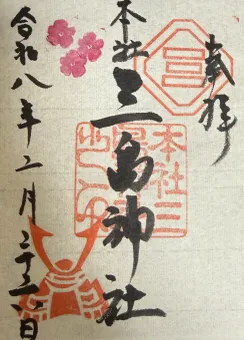 奉拝
本社
三島神社
令和八年二月二十三日
本社三
之印